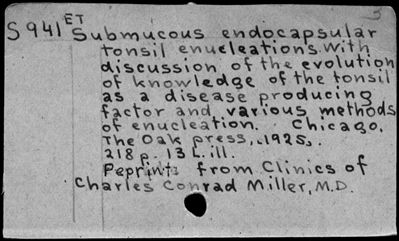 3
ET
S941 Submucous endocapsular
tonsil enucleations. With
discussion of the evolution
of knowledge of the tonsil
as a disease producing
factor and various methods
of enucleation. Chicago.
The Oak press, c1925.
218 p. 13 L. ill.
Reprints from Clinics of
Charles Conrad Miller, M.D.